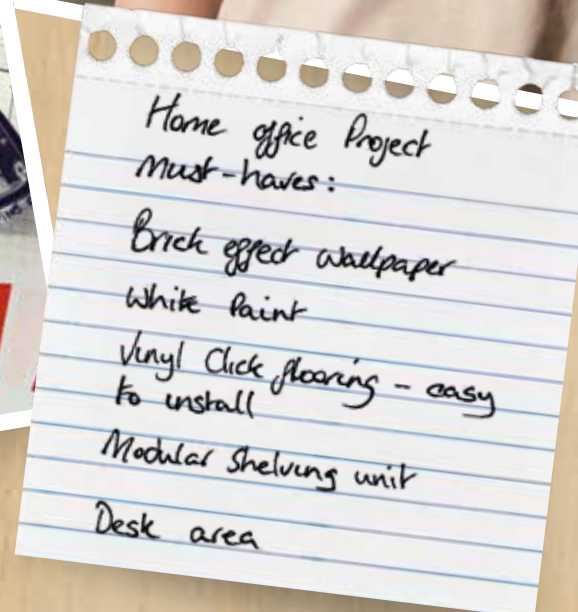 Home office Project
Must-haves:
Brick effect wallpaper
White Paint
Vinyl Click flooring - easy
to install
Modular Shelving unit
Desk area